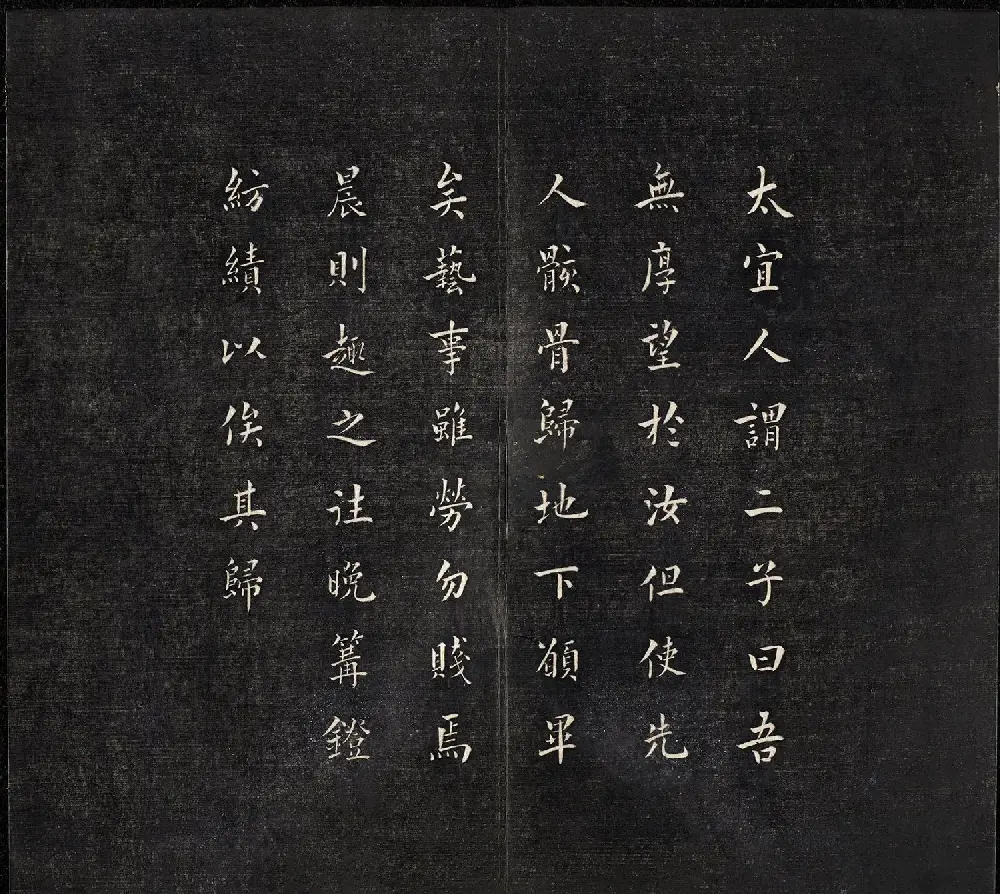 太宜人謂二子曰吾
無厚望於汝但使先
人骸骨歸地下願畢
矣藝事雖勞勿賤焉
晨則趣之往晚篝鐙
紡績以俟其歸